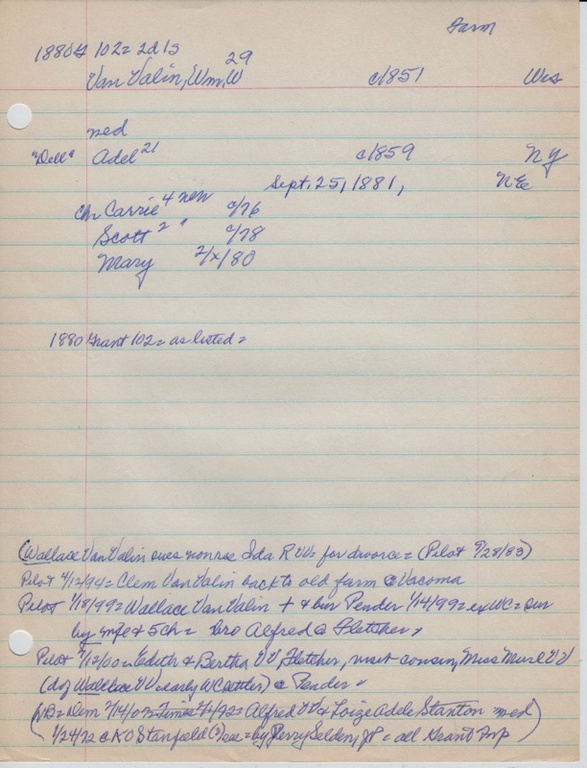 Farm
1880 G 102 = 2d 1s
Van Valin, Wm, W 29 c/1851 Wis
med
"Dell" Adel 21 c/1859 NY
Sept. 25, 1881, NE
Ch Carrie 4 new c/76
Scott 2 " c/78
Mary 2/x/80
1880 Grant 102 = as listed =
(Wallace Van Valin sues nonres Ida R VV for divorce = (Pilot 9/28/83)
Pilot 4/12/94 = Clem Van Valin back to old farm @ Vacoma
Pilot 1/18/99 = Wallace Van Valin + & bur Pender 1/14/99 = ex WC = sur
by wife & 5 ch = bro Alfred @ Fletcher
Pilot 7/12/00 = Edith & Bertha VV, Fletcher, visit cousin, Miss Murl VV
(d of Wallace VV early WC settler) @ Pender
(WB = Dem = Alfred VV & Loize Adele Stanton med
1/24/72 @ K O Stanfield (?) = by Perry Selden, JP = all Grant Twp)